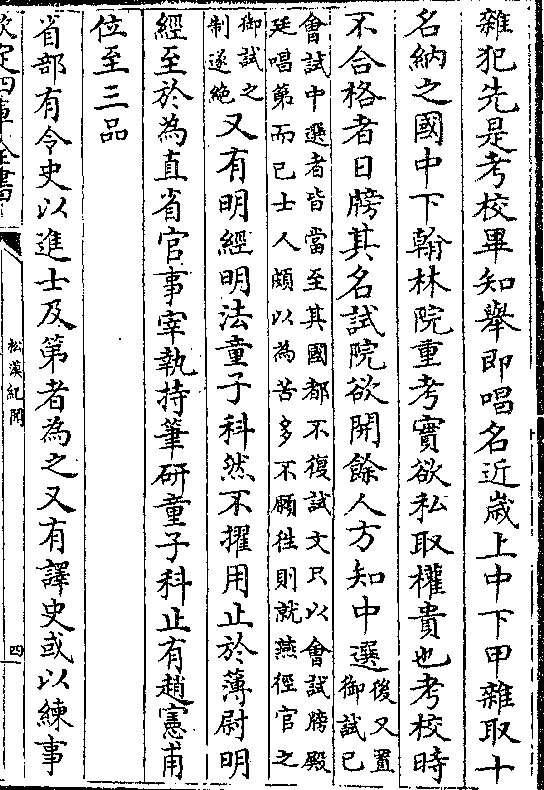 雜犯先是考校畢知舉即唱名近嵗上中下甲雜取十
名納之國中下翰林院重考實欲私取權貴也考校時
不合格者日牓其名試院欲開餘人方知中選後又置
御試已
會試中選者皆當至其國都不復試文只以會試牓殿
廷唱第而已士人頗以為苦多不願徃則就燕徑官之
御試之
制遂絶又有明經明法童子科然不擢用止於薄尉明
經至於為直省官事宰執持筆研童子科止有趙憲甫
位至三品
省部有令史以進士及第者為之又有譯史或以練事
欽定四庫全書
松漠紀聞
四